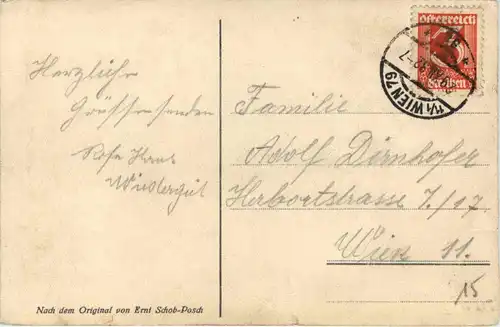 Herzliche
Grüsse senden
Hans
Familie
Adolf Dirnhofer
Herbortstrasse 7/17
Wien 11.
15
Nach dem Original von Erni Schob-Posch
österreich
Groschen
11/1 WIEN 79